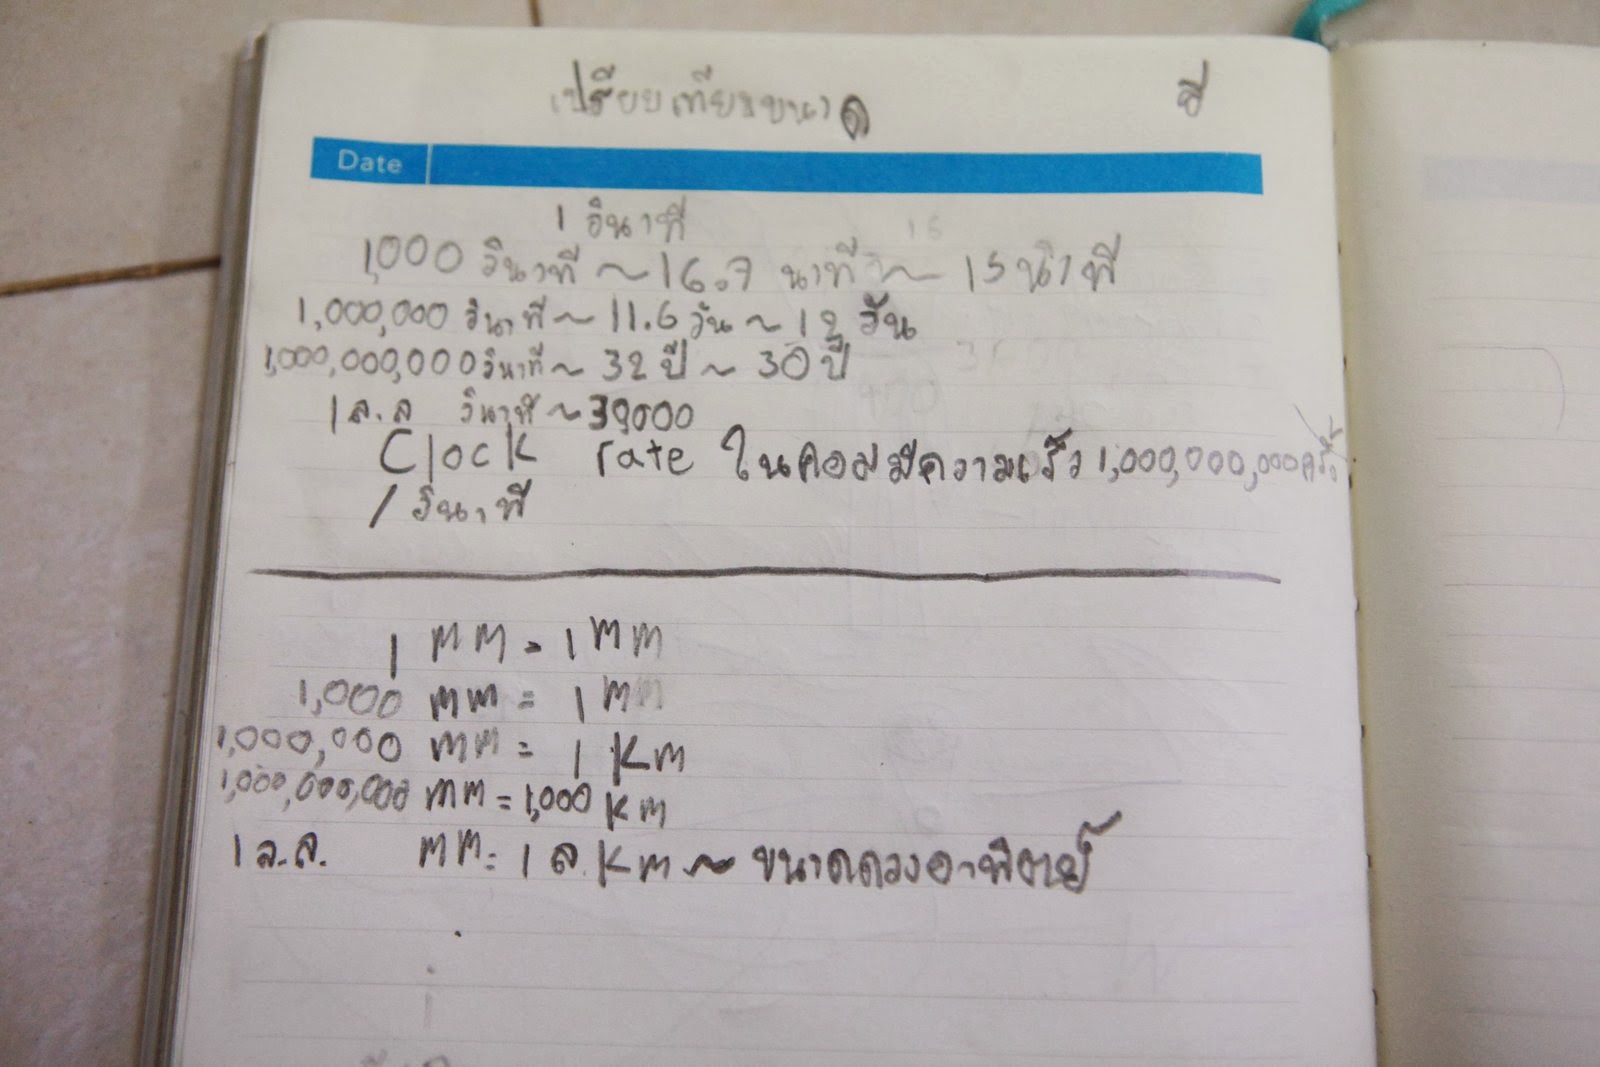 เปรียบเทียบขนาด
Date
1 วินาที
1,000 วินาที ~ 16.7 นาที ~ 15 นาที
1,000,000 วินาที ~ 11.6 วัน ~ 12 วัน
1,000,000,000 วินาที ~ 32 ปี ~ 30 ปี
1 ล.ล วินาที ~ 30,000
Clock rate ในคอมมีความเร็ว 1,000,000,000 ครั้ง
/ วินาที
1 mm = 1 mm
1,000 mm = 1 m
1,000,000 mm = 1 km
1,000,000,000 mm = 1,000 km
1 ล.ล. mm = 1 ล. km ~ ขนาดดวงอาทิตย์